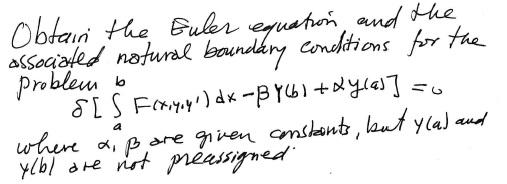 Obtain the Euler equation and the
associated natural boundary conditions for the
problem
δ[∫_a^b F(x,y,y') dx - βy(b) + αy(a)] = 0
where α, β are given constants, but y(a) and
y(b) are not preassigned.